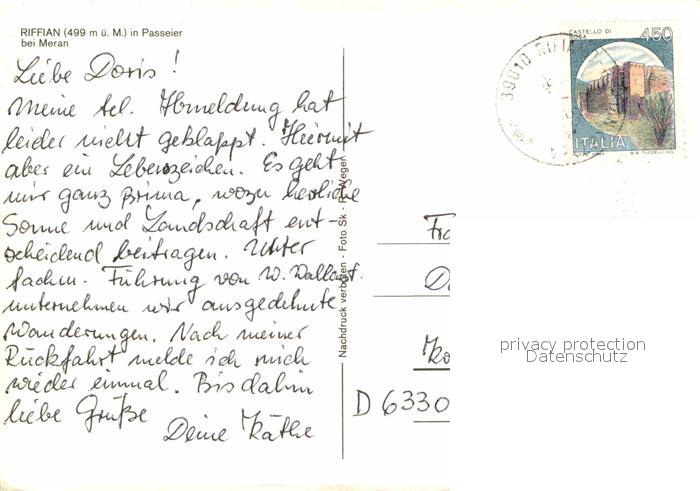 RIFFIAN (499 m ü. M.) in Passeier
bei Meran
Liebe Doris!
Meine tel. Abmeldung hat
leider nicht geklappt. Hiermit
aber ein Lebenszeichen. Es geht
mir ganz prima, wozu herrliche
Sonne und Landschaft ent-
scheidend beitragen. Unter
fachm. Führung von W.
unternehmen wir ausgedehnte
Wanderungen. Nach meiner
Rückfahrt melde ich mich
wieder einmal. Bis dahin
liebe Grüße
Deine Käthe
Nachdruck verboten - Foto Sk -
39010 RIFIA
CASTELLO DI
450
ITALIA
Fr
D
Ko
D 6330
privacy protection
Datenschutz